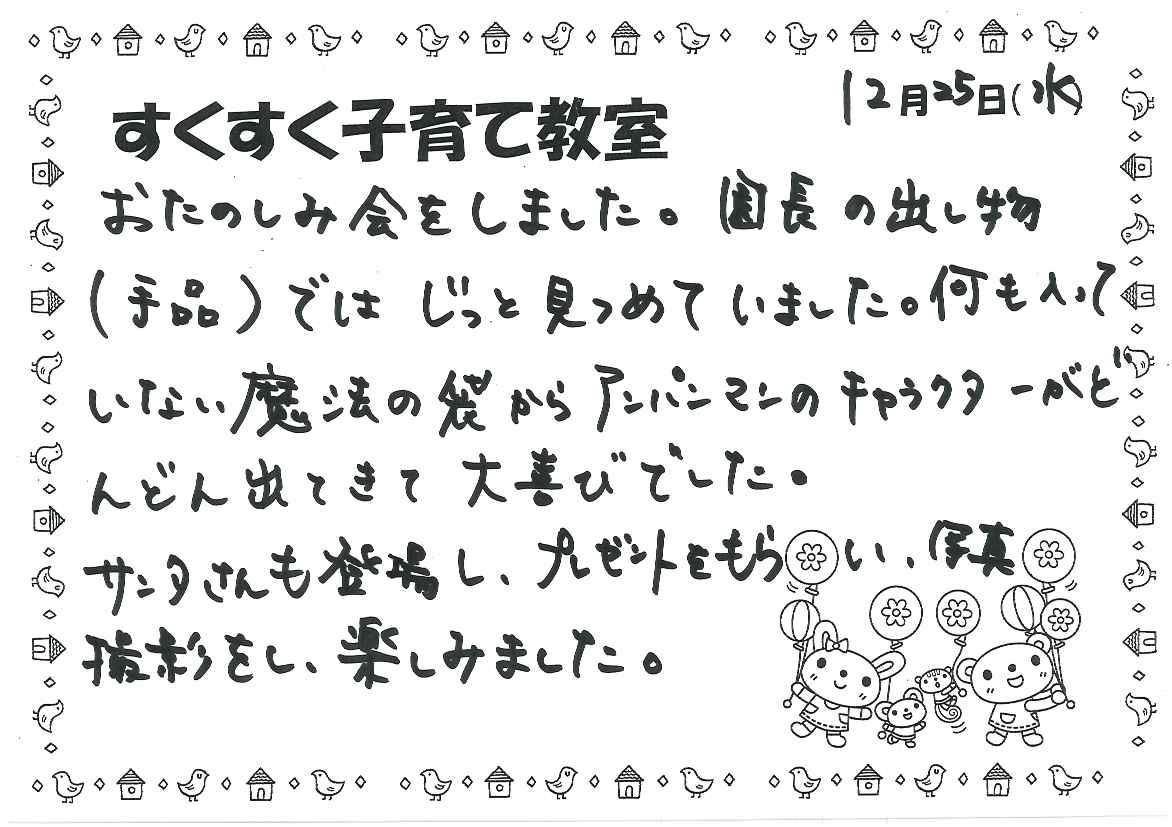 12月25日(水)
すくすく子育て教室
おたのしみ会をしました。園長の出し物
(手品)では じっと見つめていました。何も入って
いない魔法の袋からアンパンマンのキャラクターがど
んどん出てきて 大喜びでした。
サンタさんも登場し、プレゼントをもらい、写真
撮影をし、楽しみました。